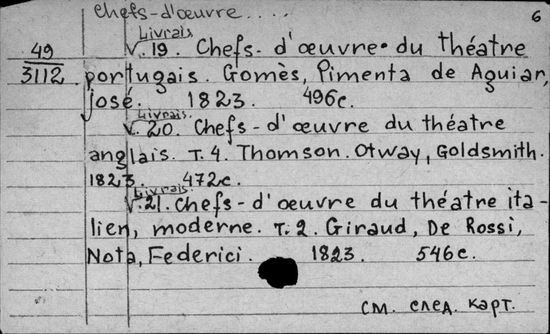 Chefs-d'œuvre.... 6
Livrais.
49 V. 19. Chefs-d'œuvre du théatre
3112 portugais. Gomès, Pimenta de Aguiar,
José. 1823. 496c.
Livrais.
V. 20. Chefs-d'œuvre du théatre
anglais. T. 4. Thomson. Otway, Goldsmith.
1823. 472c.
Livrais.
V. 21. Chefs-d'œuvre du théatre ita-
lien, moderne. T. 2. Giraud, De Rossi,
Nota, Federici. 1823. 546c.
см. след. карт.